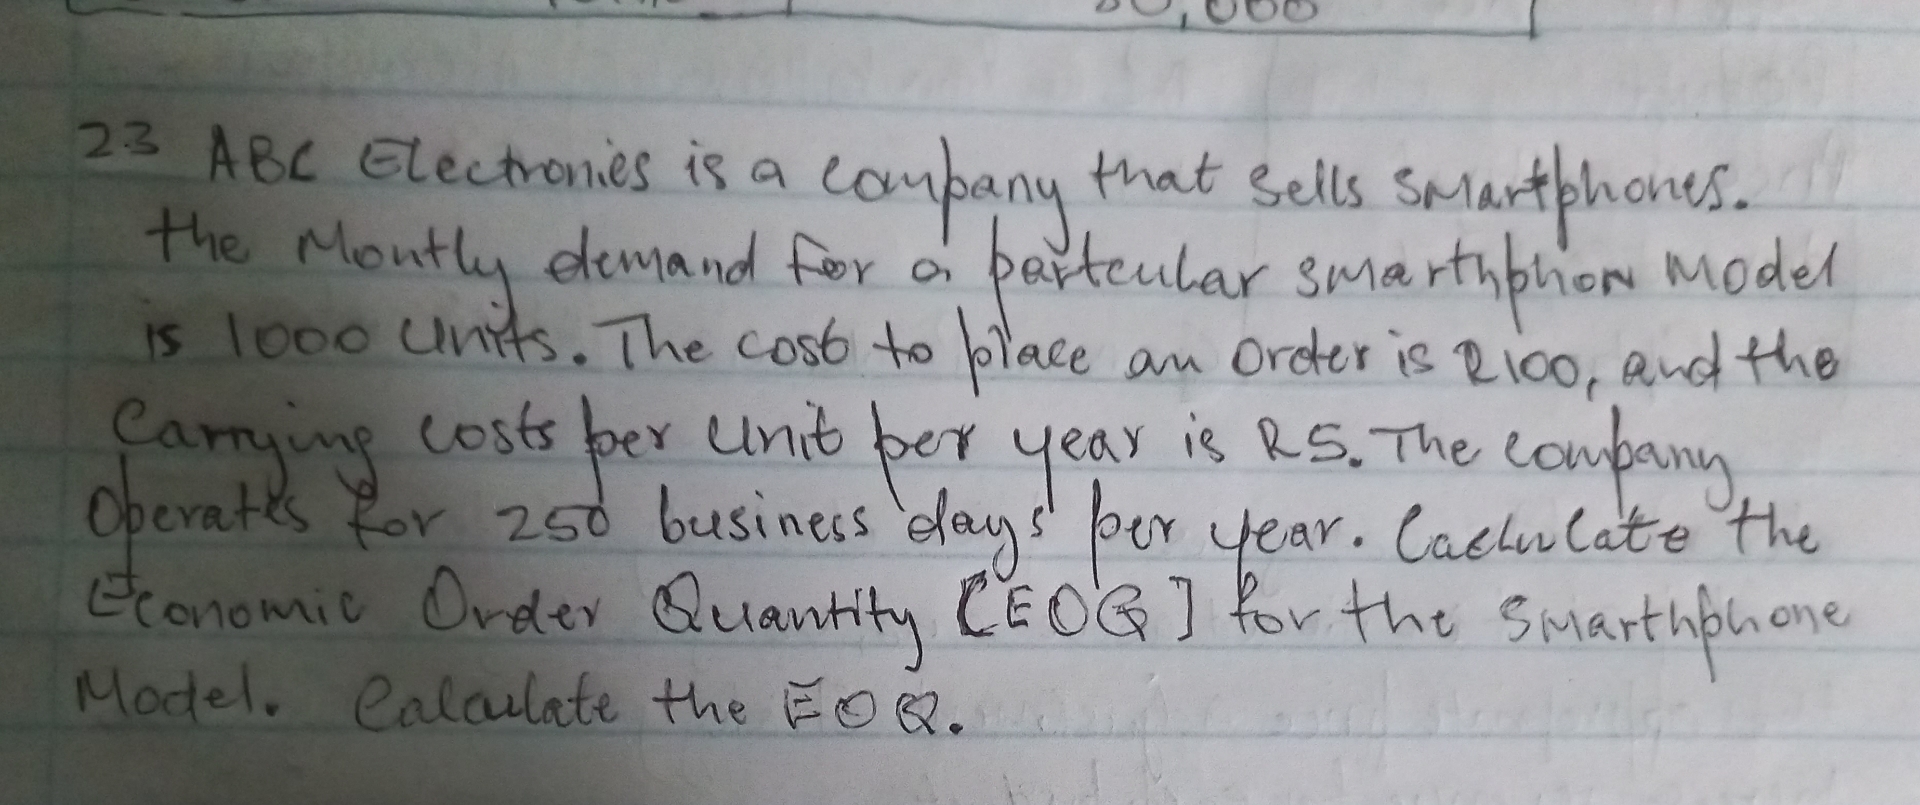 23 ABC Electronies is a company that sells smartphones.
the Montly demand for a partcular smarthphon Model
is 1000 units. The cost to place an Order is R100, and the
Carrying costs per unit per year is R5. The company
Operates for 250 business days per year. Caclulate the
Economic Order Quantity [EOQ] for the Smarthphone
Model. Calculate the EOQ.